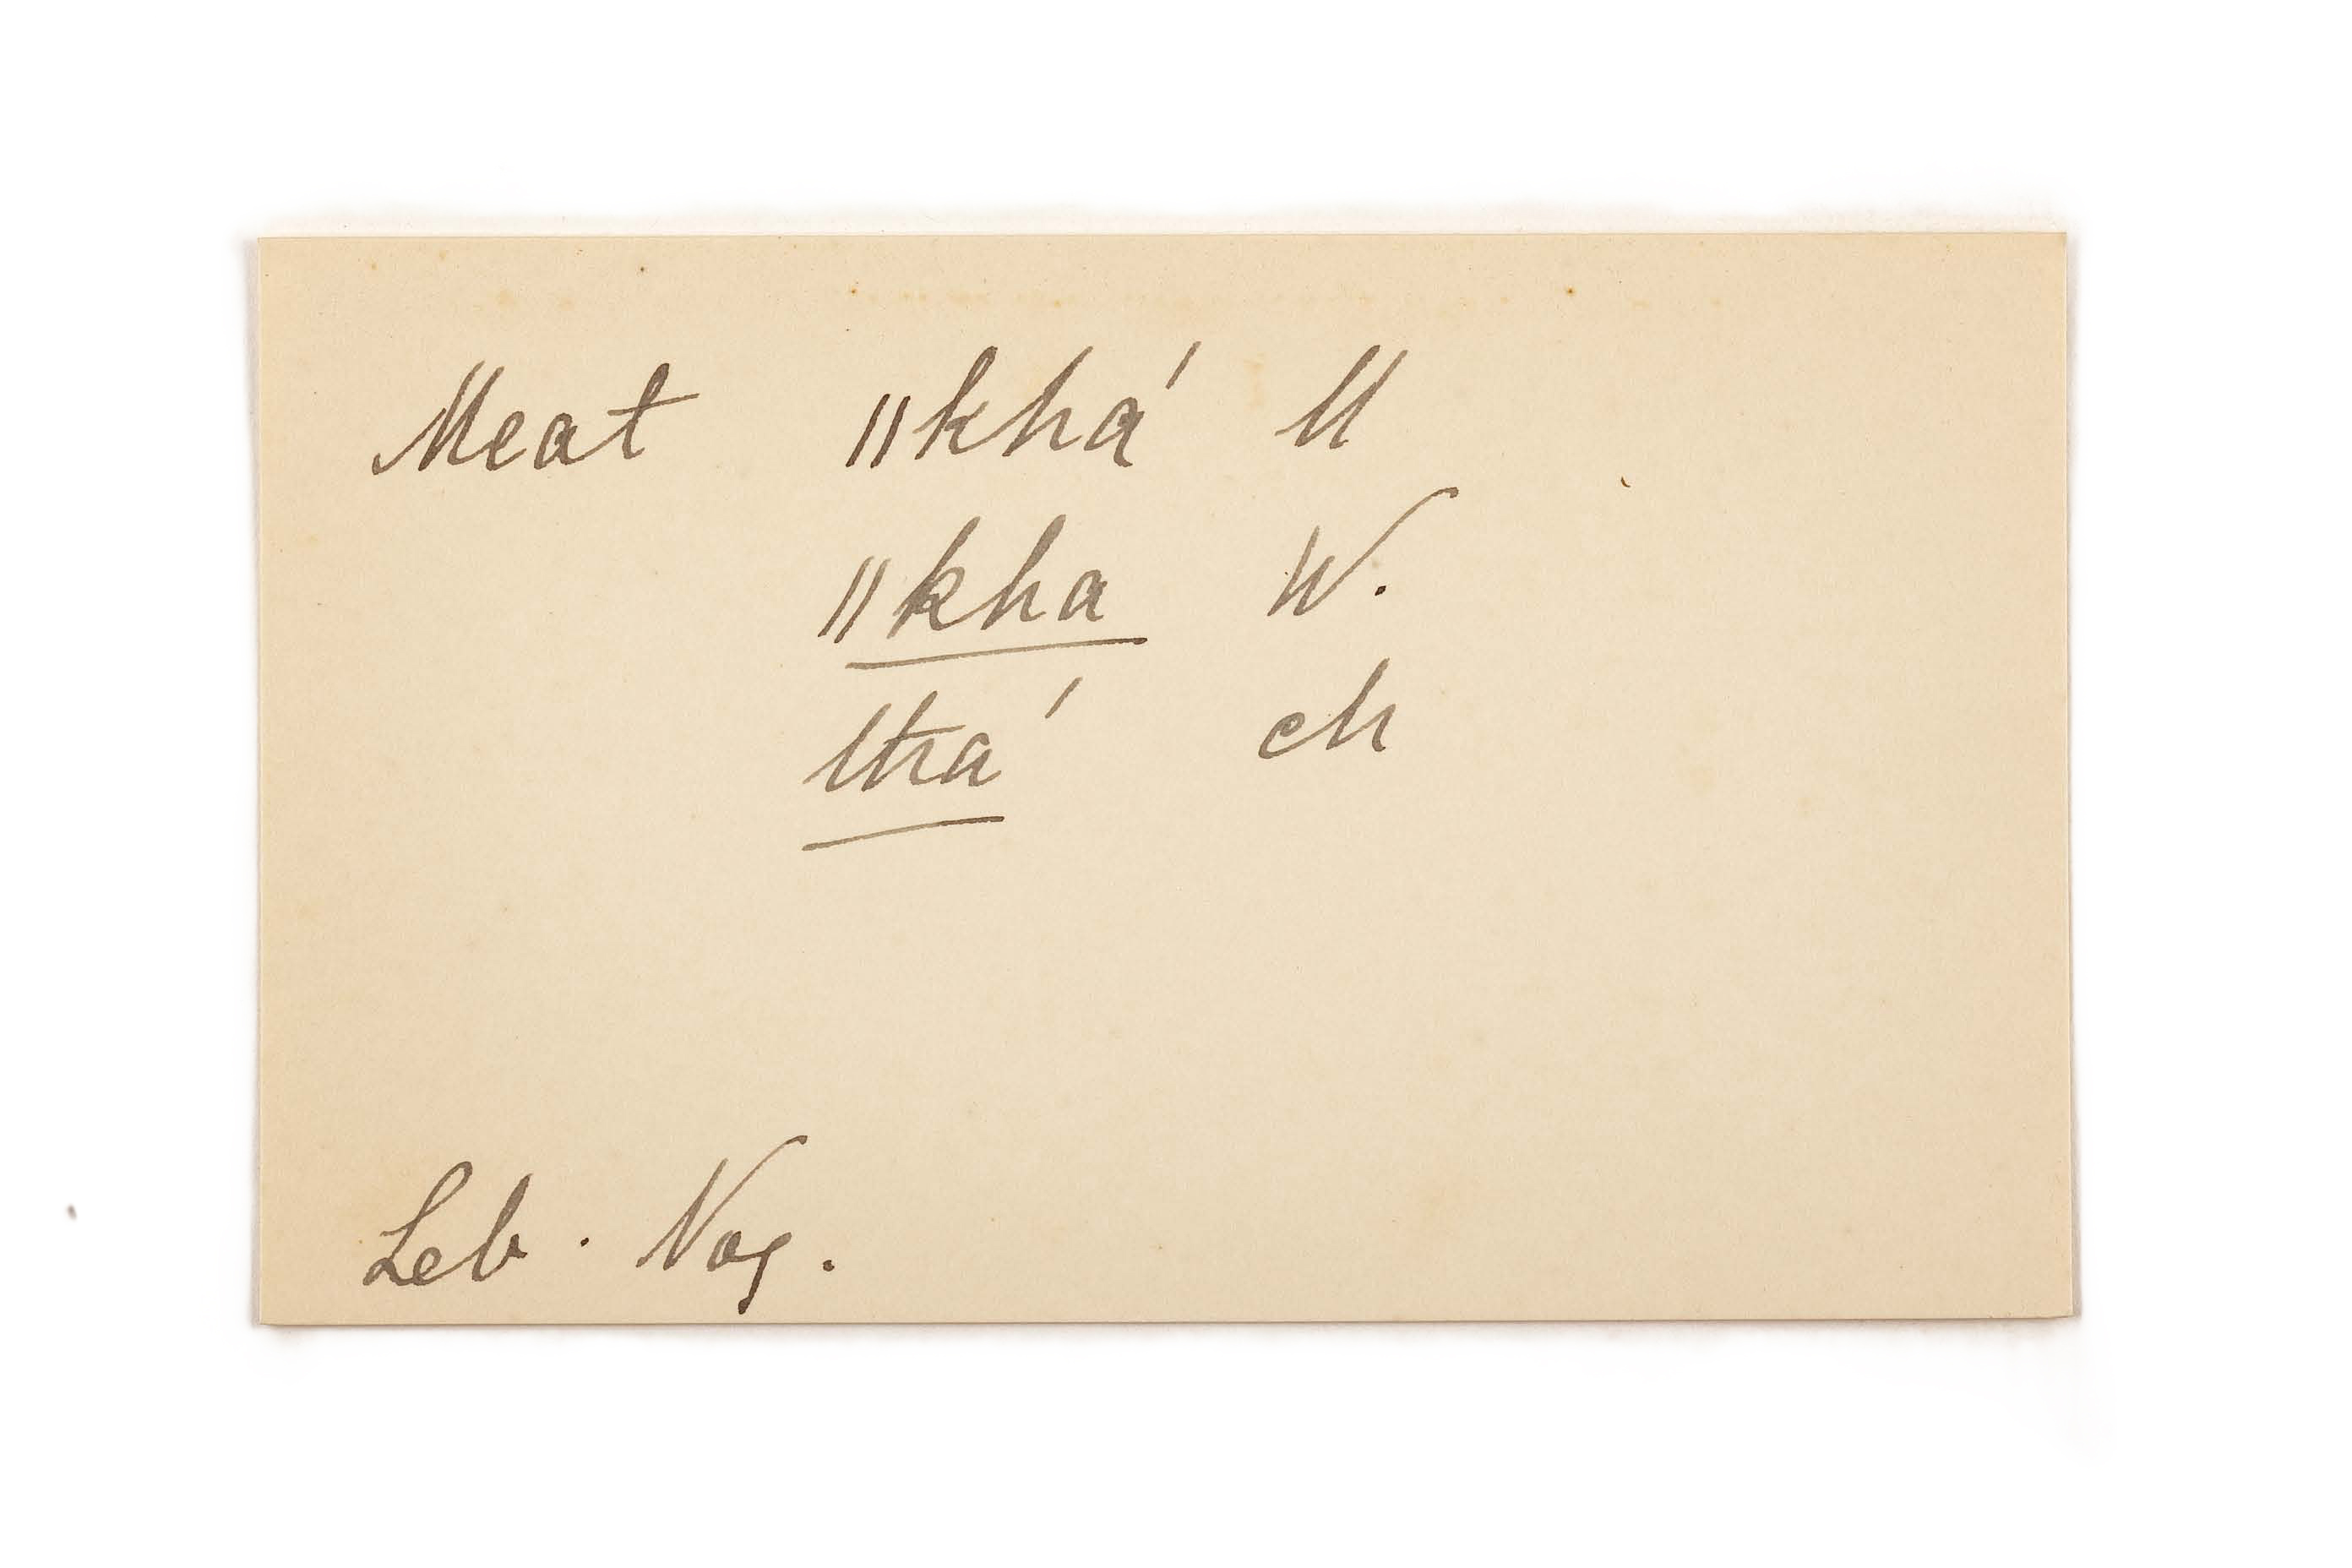 Meat ǁkhá M
ǁkha W.
ltha´ ch
Leb. Vog.